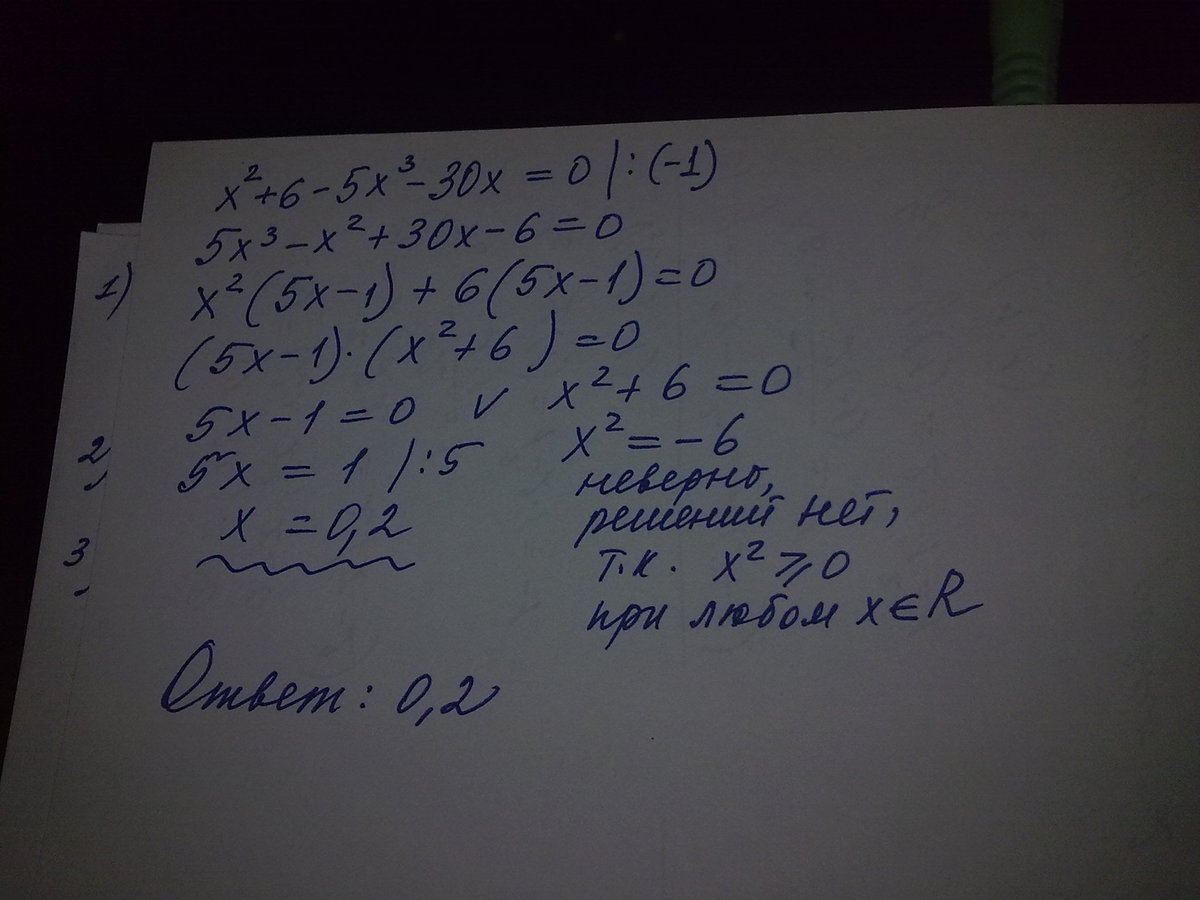 x²+6-5x³-30x=0|:(-1)
5x³-x²+30x-6=0
1) x²(5x-1)+6(5x-1)=0
(5x-1)·(x²+6)=0
5x-1=0 ∨ x²+6=0
2, 5x=1|:5 x²=-6
x=0,2 неверно,
решений нет,
3 т.к. x²⩾0
при любом x∈R
Ответ: 0,2